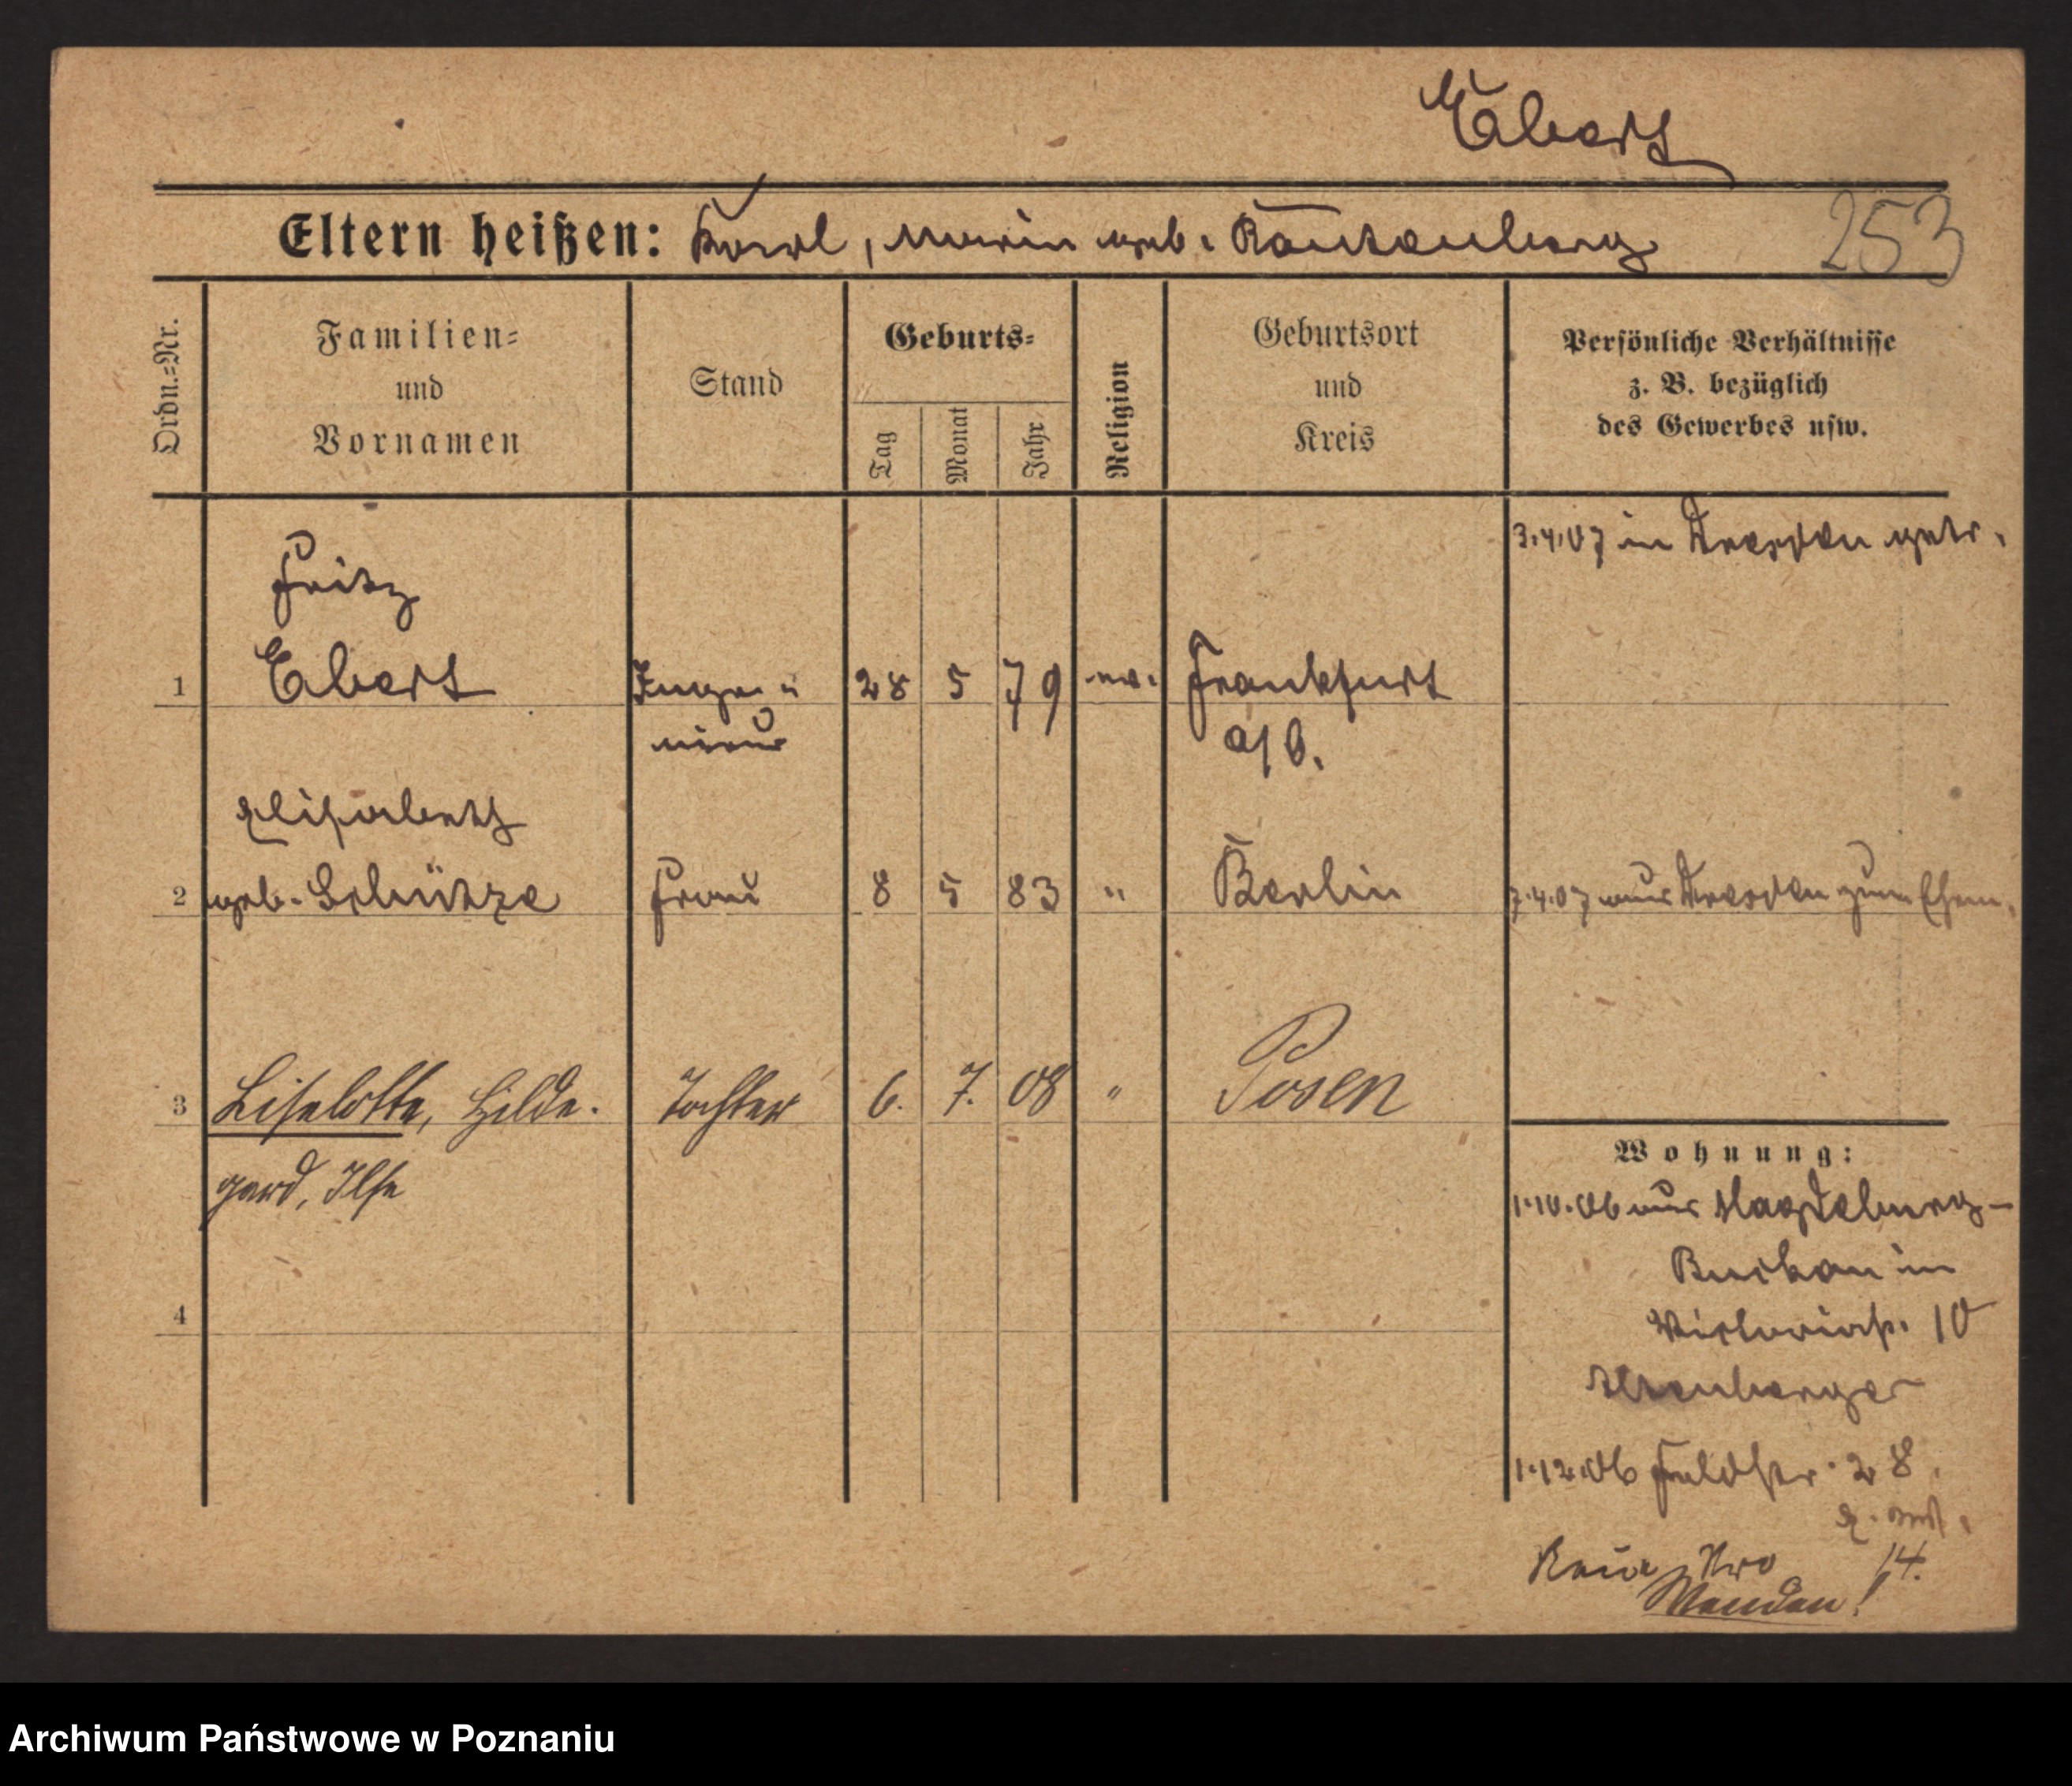 Ebert
Eltern heißen: Karl, Marie geb. Rautenberg
253
Ordn.=Nr.
Familien=
und
Vornamen
Stand
Geburts=
Tag
Monat
Jahr
Religion
Geburtsort
und
Kreis
Persönliche Verhältnisse
z. B. bezüglich
des Gewerbes usw.
3.4.07 in Dresden getr.
Fritz
1 Ebert Ingeni= 28 5 79 ev. Frankfurt
nieur a/O.
Elisabeth
2 geb. Schütze Frau 8 5 83 " Berlin 7.4.07 aus Dresden zum Ehem.
3 Liselotte, Hilde= Tochter 6. 7. 08 " Posen
gard, Ilse
4
Wohnung:
1.10.06 aus Magdeburg-
Buckau in
Victoriastr. 10
Altenberger
1.12.06 Feldstr. 28.
14.
Wenden!
Archiwum Państwowe w Poznaniu